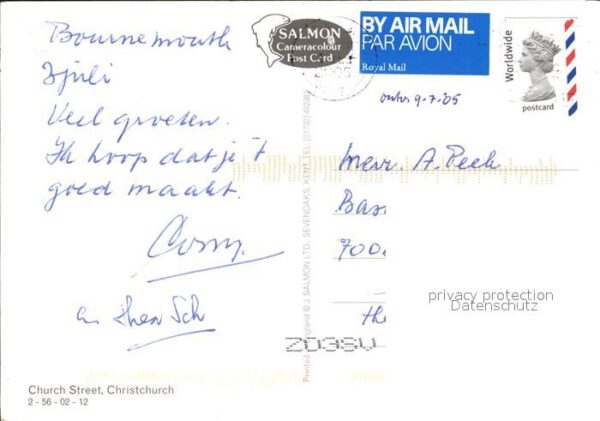 Bournemouth
3 juli
Veel groeten.
Ik hoop dat je 't
goed maakt.
SALMON
Cameracolour
Post Card
BY AIR MAIL
PAR AVION
Royal Mail
Worldwide
postcard
9-7-'05
Mevr. A. Peek
Bas
700
the
privacy protection
Datenschutz
Printed in England © J. SALMON LTD., SEVENOAKS, KENT. TEL.
Church Street, Christchurch
2 - 56 - 02 - 12